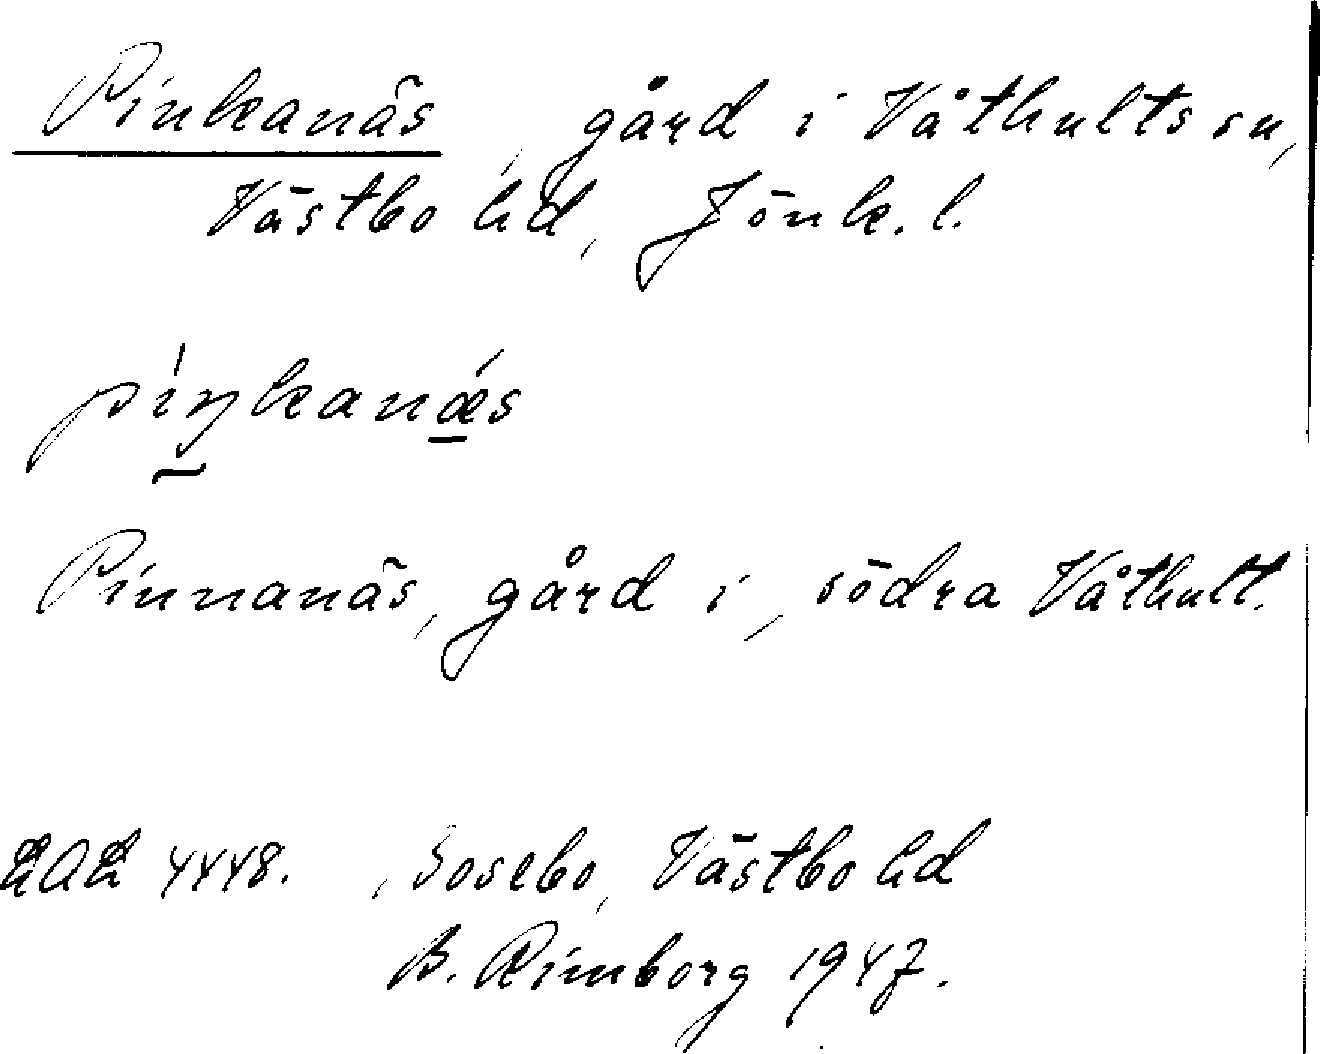 Pinkanäs, gård i Våthults sn,
Västbo hd, Jönk. l.
píŋkanǽs
Pinnanäs, gård i, södra Våthult.
4448. , Bosebo, Västbo hd
B. Rimborg 1947.